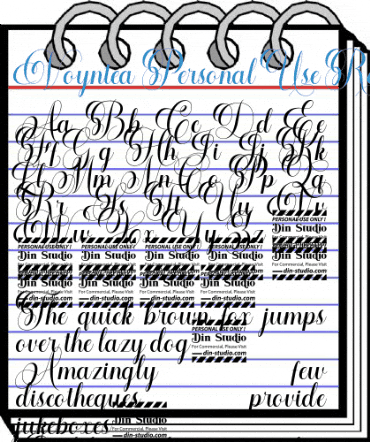 Voyntea Personal Use Re
Aa Bb Cc Dd Ee
Ff Gg Hh Ii Jj Kk
Ll Mm Nn Oo Pp Qq
Rr Ss Tt Uu Vv
Ww Xx Yy Zz
PERSONAL USE ONLY!
Din Studio
For Commercial, Please Visit
din-studio.com
PERSONAL USE ONLY! PERSONAL USE ONLY! PERSONAL USE ONLY! PERSONAL USE ONLY!
Din Studio Din Studio Din Studio Din Studio
Din Studio Din Studio Din Studio Din Studio
For Commercial, Please Visit For Commercial, Please Visit For Commercial, Please Visit For Commercial, Please Visit
din-studio.com din-studio.com din-studio.com din-studio.com
The quick brown fox jumps
over the lazy dog
PERSONAL USE ONLY!
Din Studio
For Commercial, Please Visit
din-studio.com
Amazingly few
discotheques provide
jukeboxes
Din Studio
For Commercial, Please Visit
din-studio.com